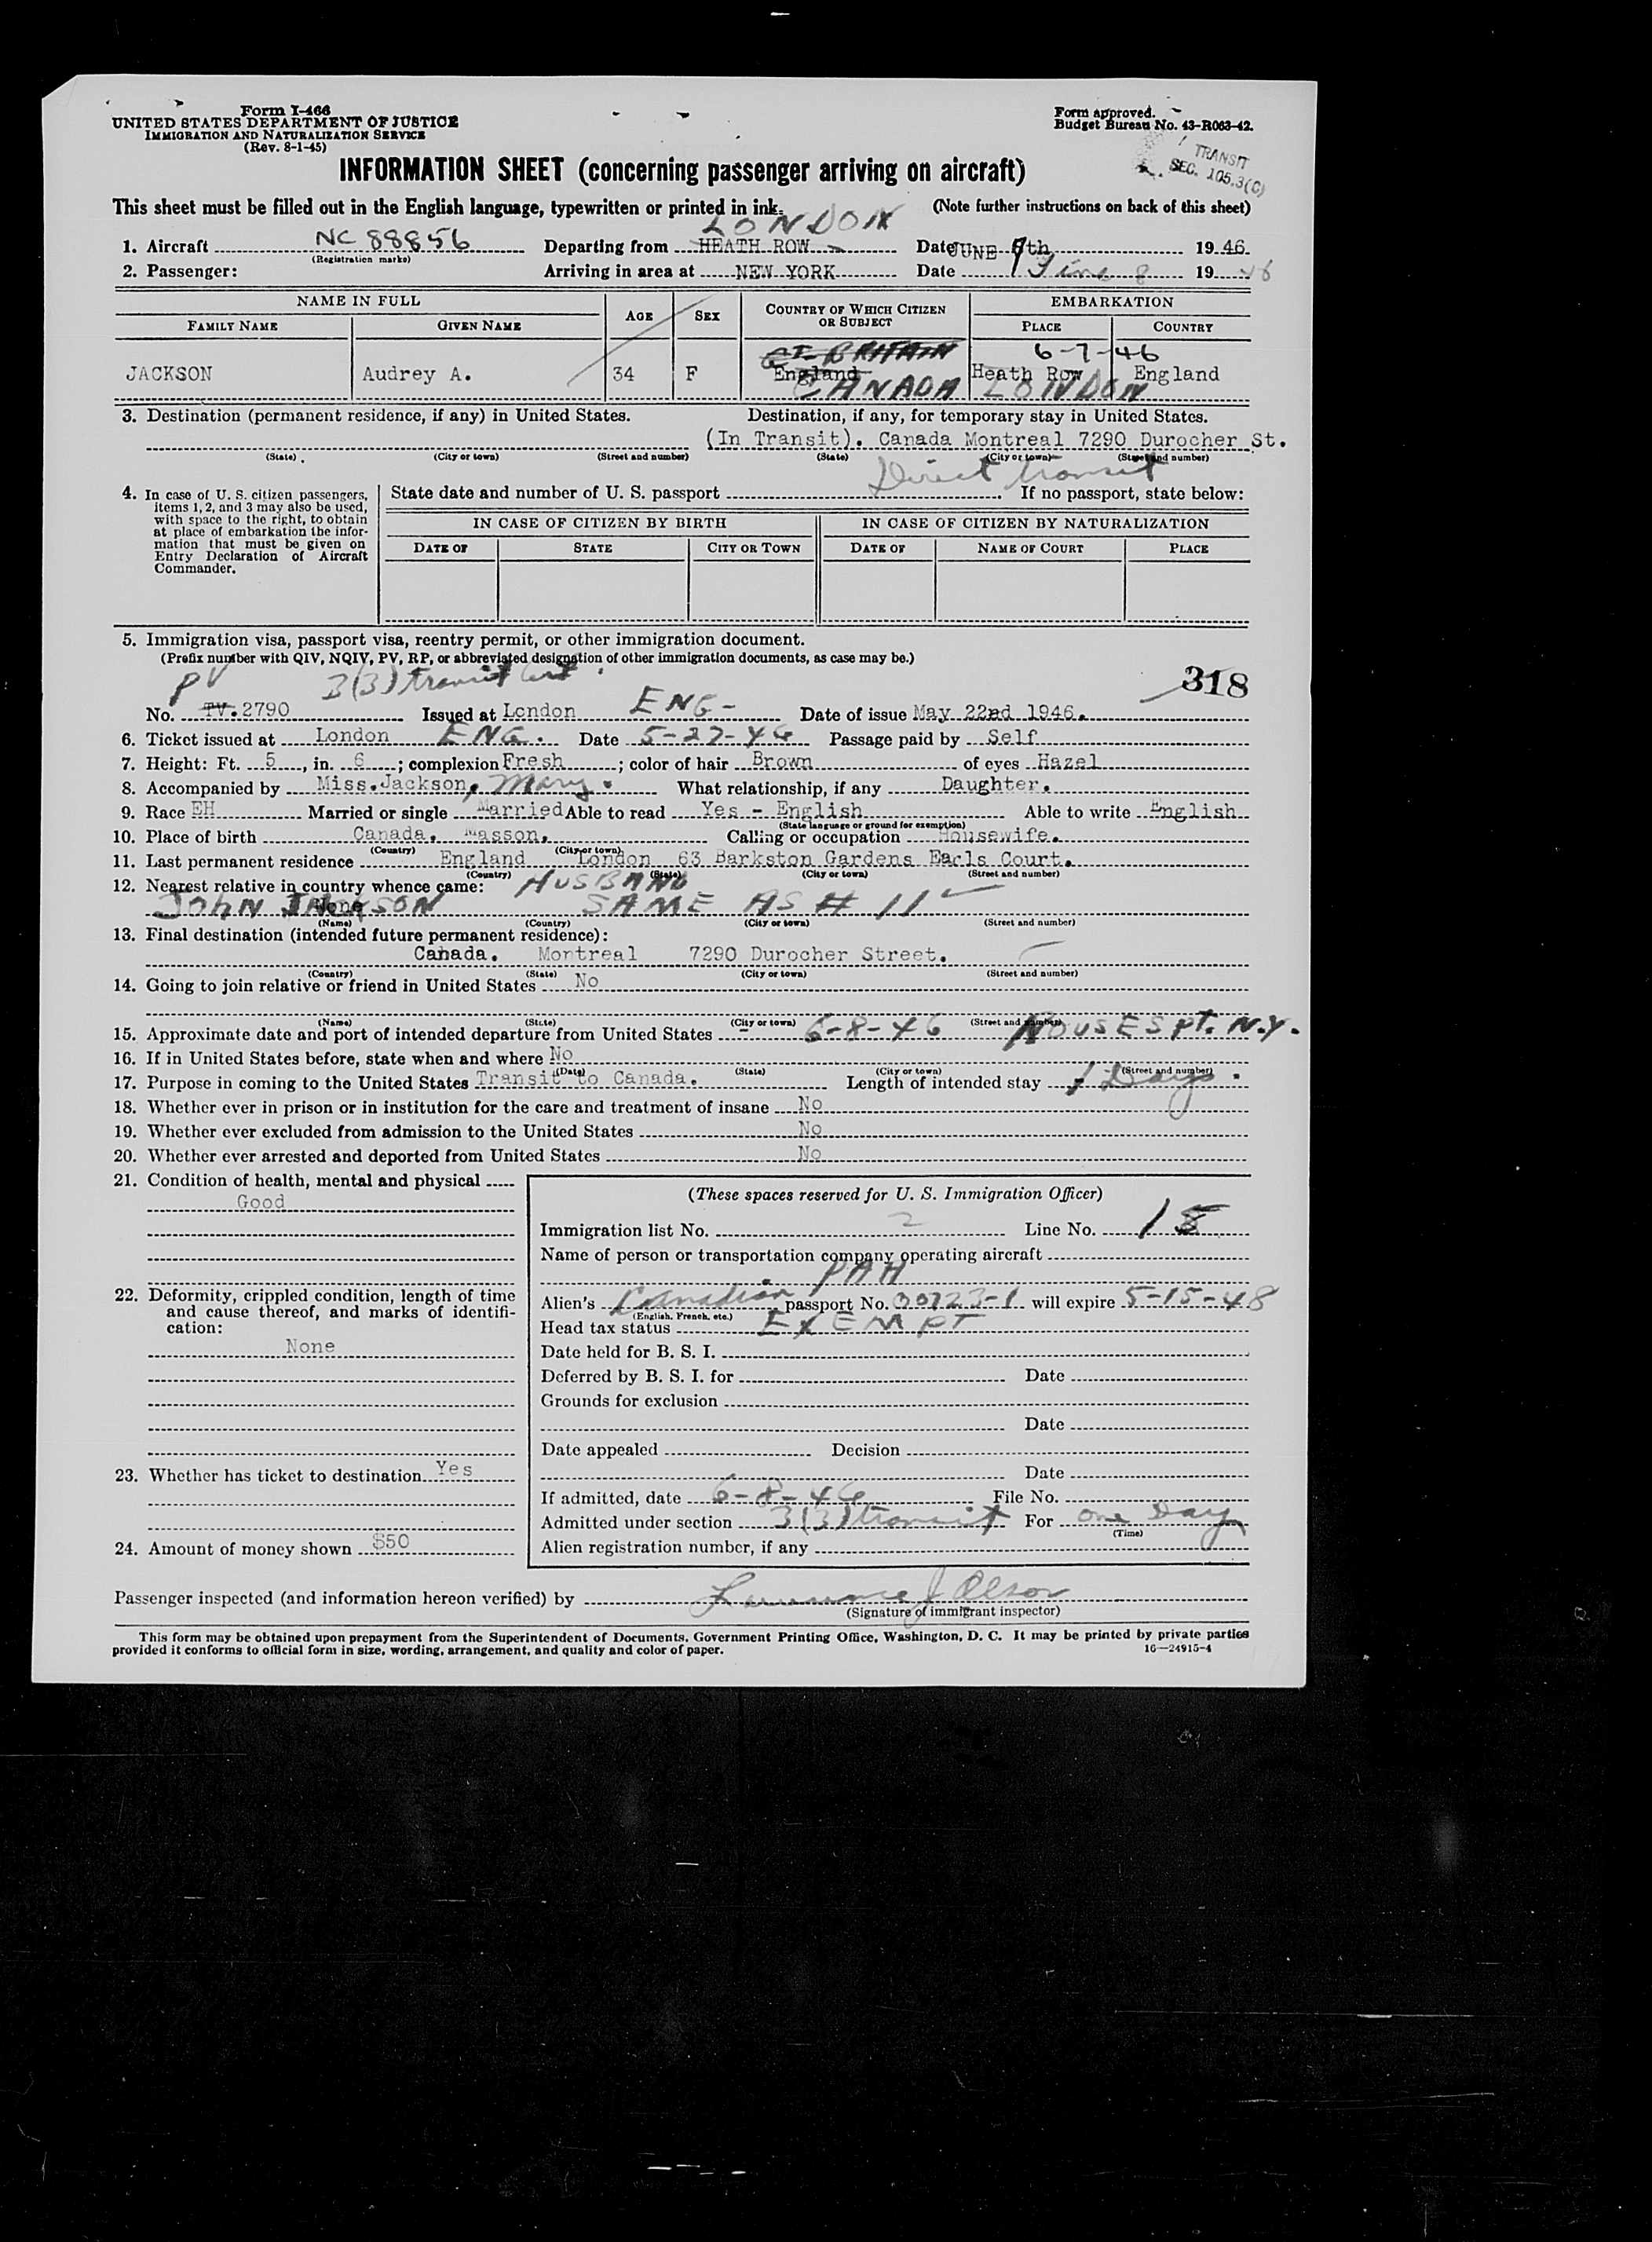 Form I-466
UNITED STATES DEPARTMENT OF JUSTICE
IMMIGRATION AND NATURALIZATION SERVICE
(Rev. 8-1-45)
Form approved.
Budget Bureau No. 43-R063-42.
TRANSIT
SEC. 105.3(C)
INFORMATION SHEET (concerning passenger arriving on aircraft)
This sheet must be filled out in the English language, typewritten or printed in ink. (Note further instructions on back of this sheet)
LONDON
1. Aircraft NC 88856 Departing from HEATH ROW Date JUNE 7th 19 46
(Registration marks)
2. Passenger: Arriving in area at NEW YORK Date June 8 19 46
NAME IN FULL AGE SEX COUNTRY OF WHICH CITIZEN OR SUBJECT EMBARKATION
FAMILY NAME GIVEN NAME PLACE COUNTRY
GT. BRITAIN 6-7-46
JACKSON Audrey A. 34 F England Heath Row England
CANADA LONDON
3. Destination (permanent residence, if any) in United States. Destination, if any, for temporary stay in United States.
(In Transit). Canada Montreal 7290 Durocher St.
(State) (City or town) (Street and number) (State) (City or town) (Street and number)
Direct transit
4. In case of U. S. citizen passengers, items 1, 2, and 3 may also be used, with space to the right, to obtain at place of embarkation the information that must be given on Entry Declaration of Aircraft Commander.
State date and number of U. S. passport . If no passport, state below:
IN CASE OF CITIZEN BY BIRTH IN CASE OF CITIZEN BY NATURALIZATION
DATE OF STATE CITY OR TOWN DATE OF NAME OF COURT PLACE
5. Immigration visa, passport visa, reentry permit, or other immigration document.
(Prefix number with QIV, NQIV, PV, RP, or abbreviated designation of other immigration documents, as case may be.)
PV 3(3) transit cert. 318
No. TV. 2790 Issued at London ENG- Date of issue May 22nd 1946.
6. Ticket issued at London ENG. Date 5-27-46 Passage paid by Self
7. Height: Ft. 5, in. 6; complexion Fresh; color of hair Brown of eyes Hazel
8. Accompanied by Miss. Jackson, Mary. What relationship, if any Daughter.
9. Race EH Married or single Married Able to read Yes - English Able to write English
(State language or ground for exemption)
10. Place of birth Canada. Masson. Calling or occupation Housewife.
(Country) (City or town)
11. Last permanent residence England London 63 Barkston Gardens Earls Court.
(Country) (State) (City or town) (Street and number)
12. Nearest relative in country whence came: HUSBAND
None
JOHN JACKSON SAME AS # 11
(Name) (Country) (City or town) (Street and number)
13. Final destination (intended future permanent residence):
Canada. Montreal 7290 Durocher Street.
(Country) (State) (City or town) (Street and number)
14. Going to join relative or friend in United States No
(Name) (State) (City or town) (Street and number)
15. Approximate date and port of intended departure from United States 6-8-46 ROUSES PT. N.Y.
16. If in United States before, state when and where No
(Date) (State) (City or town) (Street and number)
17. Purpose in coming to the United States Transit to Canada. Length of intended stay 1 Days.
18. Whether ever in prison or in institution for the care and treatment of insane No
19. Whether ever excluded from admission to the United States No
20. Whether ever arrested and deported from United States No
21. Condition of health, mental and physical
Good
22. Deformity, crippled condition, length of time and cause thereof, and marks of identification:
None
23. Whether has ticket to destination Yes
24. Amount of money shown $50
(These spaces reserved for U. S. Immigration Officer)
Immigration list No. 2 Line No. 18
Name of person or transportation company operating aircraft
PAA
Alien's Canadian passport No. 00723-1 will expire 5-15-48
(English, French, etc.)
Head tax status EXEMPT
Date held for B. S. I.
Deferred by B. S. I. for Date
Grounds for exclusion
Date
Date appealed Decision
Date
If admitted, date 6-8-46 File No.
Admitted under section 3(3) transit For one Day
(Time)
Alien registration number, if any
Passenger inspected (and information hereon verified) by Lawrence J Olson
(Signature of immigrant inspector)
This form may be obtained upon prepayment from the Superintendent of Documents, Government Printing Office, Washington, D. C. It may be printed by private parties
provided it conforms to official form in size, wording, arrangement, and quality and color of paper. 16—24915-4